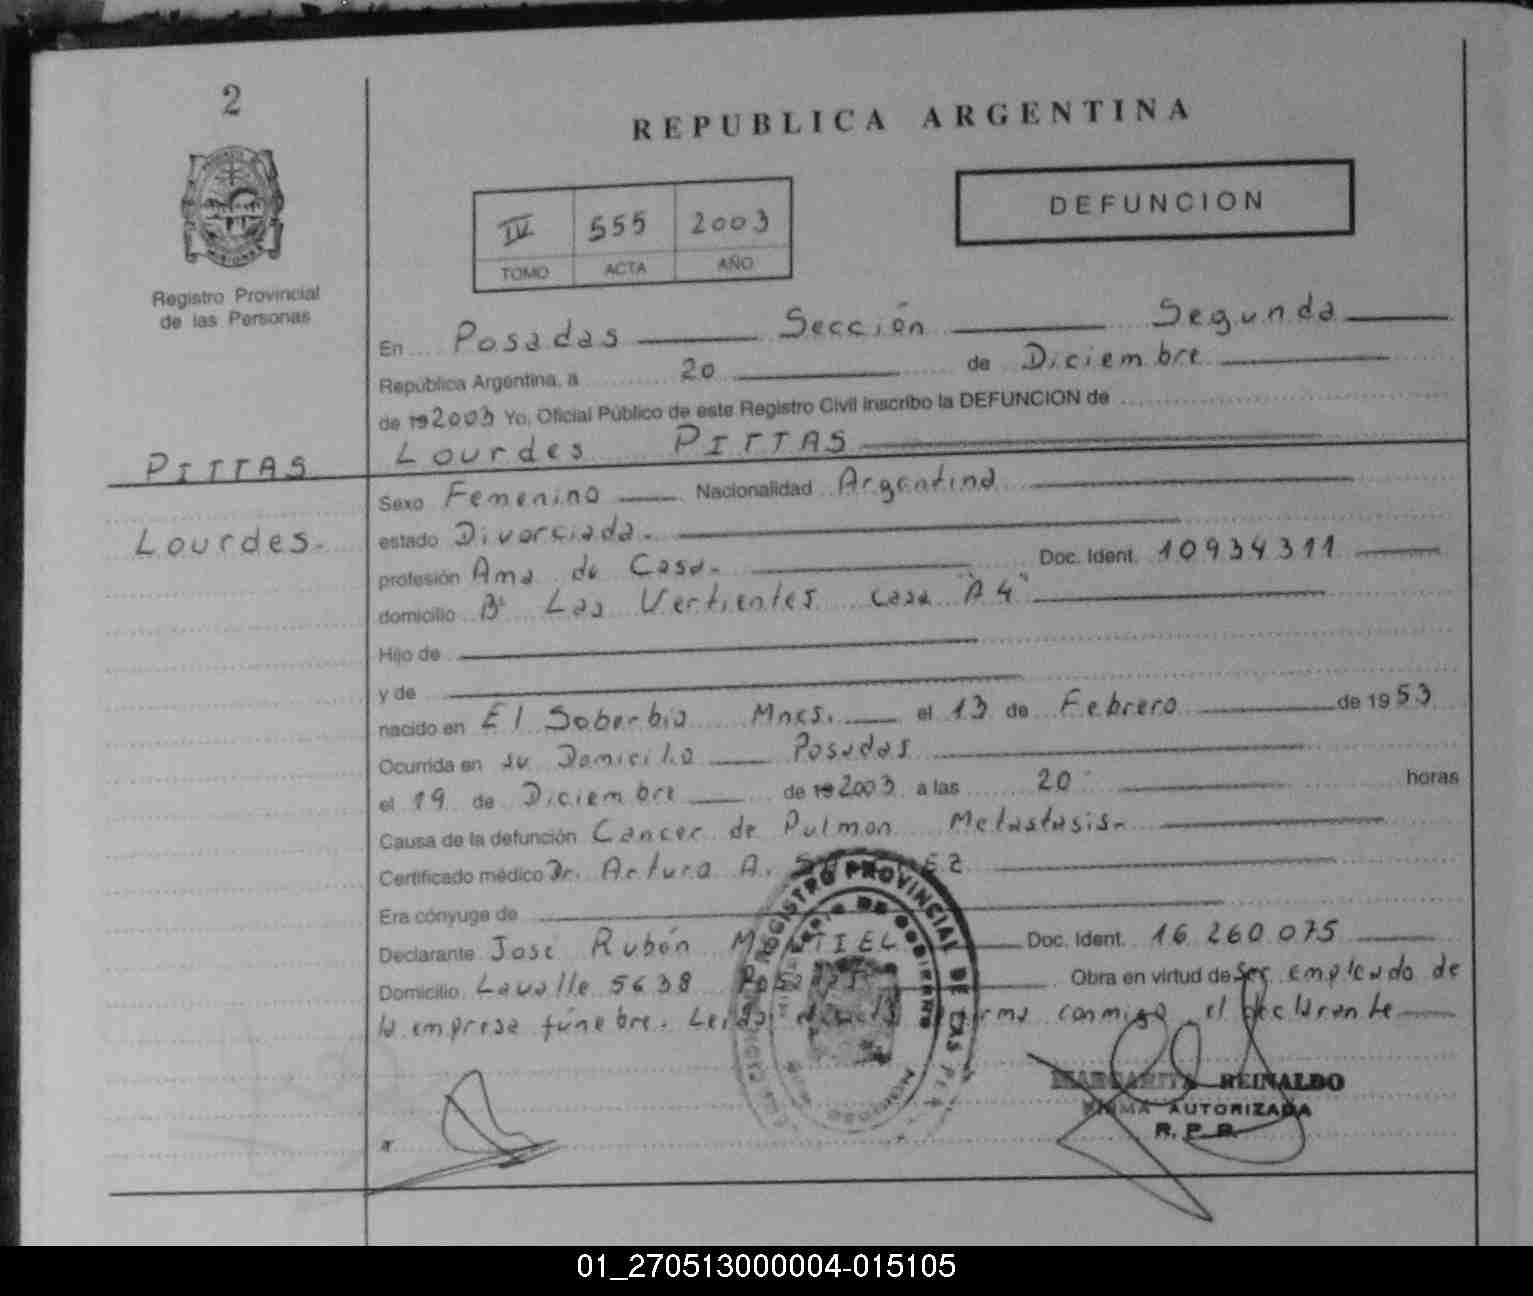 2
REPUBLICA ARGENTINA
IV 555 2003
TOMO ACTA AÑO
DEFUNCION
Registro Provincial
de las Personas
En Posadas Sección Segunda
República Argentina, a 20 de Diciembre
de 19 2003 Yo, Oficial Público de este Registro Civil inscribo la DEFUNCION de
Lourdes PITTAS
PITTAS
Lourdes.
Sexo Femenino Nacionalidad Argentina
estado Divorciada.
profesión Ama de Casa. Doc. Ident. 10934311
domicilio B° Las Vertientes casa "A4"
Hijo de
y de
nacido en El Soberbio Mnes. el 13 de Febrero de 1953
Ocurrida en su Domicilio Posadas
el 19 de Diciembre de 19 2003 a las 20 horas
Causa de la defunción Cancer de Pulmon Metastasis.
Certificado médico Dr. Arturo A.
Era cónyuge de
Declarante José Rubén Doc. Ident. 16 260 075
Domicilio Lavalle 5638 Posadas Obra en virtud de ser empleado de
la empresa fúnebre. Leída el acta firma conmigo el declarante
REGISTRO PROVINCIAL DE LAS PER
DE GOBIERNO
MARGARITA REINALDO
FIRMA AUTORIZADA
R. P. P.
01_270513000004-015105